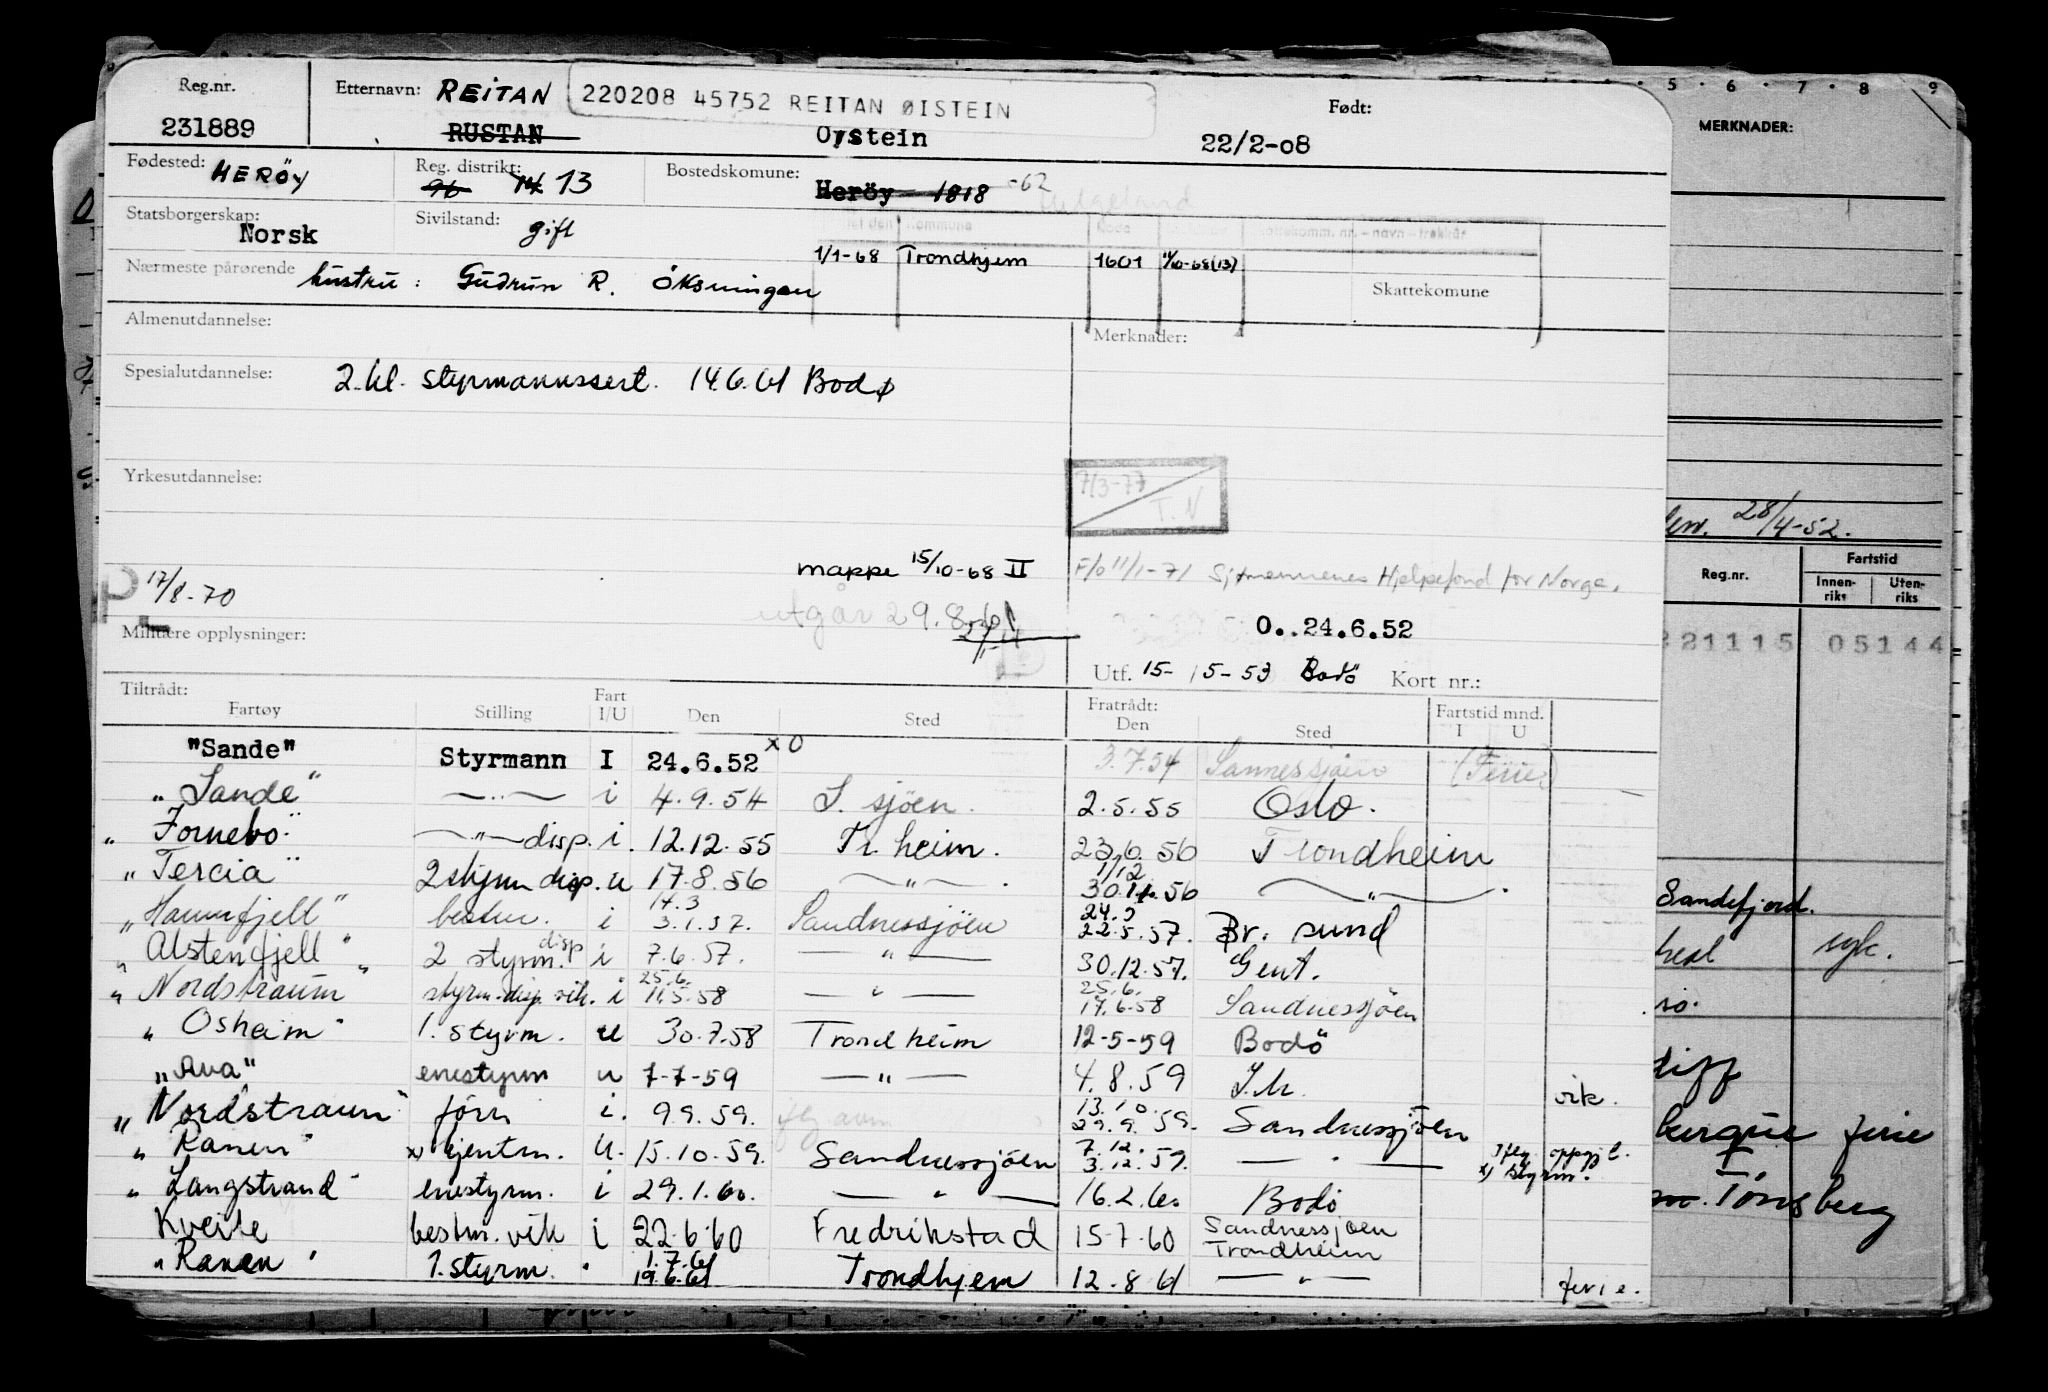 Reg.nr. Etternavn: REITAN 220208 45752 REITAN ØISTEIN Født:
231889 RUSTAN Oystein 22/2-08
Fødested: HERÖY Reg. distrikt: 96 14 13 Bostedskomune: Heröy 1818 -62 Helgeland
Statsborgerskap: Norsk Sivilstand: gift
Nærmeste pårørende hustru: Gudrun R. Öksningan
1/1-68 Trondhjem 1601 Skattekomune
Almenutdannelse: Merknader:
Spesialutdannelse: 2.kl. styrmannssert. 14.6.61 Bodø
Yrkesutdannelse:
7/3-77 T.N
17/8-70 mappe 15/10-68 II F/o 11/1-71 Sjømennenes Hjelpefond for Norge.
utgår 29.8.61
O..24.6.52
Militære opplysninger:
Utf. 15-/5-53 Bodö Kort nr.:
Tiltrådt: Fratrådt: Fartstid mnd.
Fartøy Stilling Fart I/U Den Sted Den Sted I U
"Sande" Styrmann I 24.6.52 x O 3.7.54 Sannessjöen (Ferie)
"Sande" —"— i 4.9.54 S. sjöen. 2.5.55 Oslo.
"Fornebo" —"— disp. i. 12.12.55 Tr. heim. 23.6.56 Trondheim
"Tercia" 2 styrm disp. u 17.8.56 —"—. 1/12 30.11.56 —"—.
"Havnfjell" bestm. i 17.3 3.1.57. Sandnessjöen 24.5 22.5.57. Br. sund
"Alstenfjell" 2 styrm. disp i 7.6.57. —"— 30.12.57. Gent.
"Nordstraum" styrm.disp. vik. i 25.6. 11.5.58 —"— 25.6. 17.6.58 Sandnessjöen
"Osheim" 1. styrm. u 30.7.58 Trondheim 12-5-59 Bodö
"Ava" enestyrm u 7-7-59 —"— 4.8.59 vik.
"Nordstraum" förer i. 9.9.59. 13.10. 29.9.59. Sandnessjöen
"Ranen" x) U. 15.10.59. Sandnessjöen 7.12. 3.12.59. —"— oppgj. x) styrm.
"Langstrand" enestyrm. i 29.1.60. —"— 16.2.60 Bodö
Kveite bestm. vik i 22.6.60 Fredrikstad 15.7.60 Sandnessjoen
Trondheim
"Ranen" 1. styrm. " 1.7.61 19.6.61 Trondhjem 12.8.61 —"— ferie.
5 6 7 8 9
MERKNADER:
28/4-52.
Fartstid
Reg.nr. Innen-riks Uten-riks
21115 05144
Sandefjord.
syk.
ferie
Tönsberg